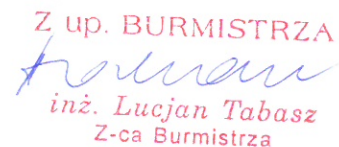 Z up. BURMISTRZA
inż. Lucjan Tabasz
Z-ca Burmistrza